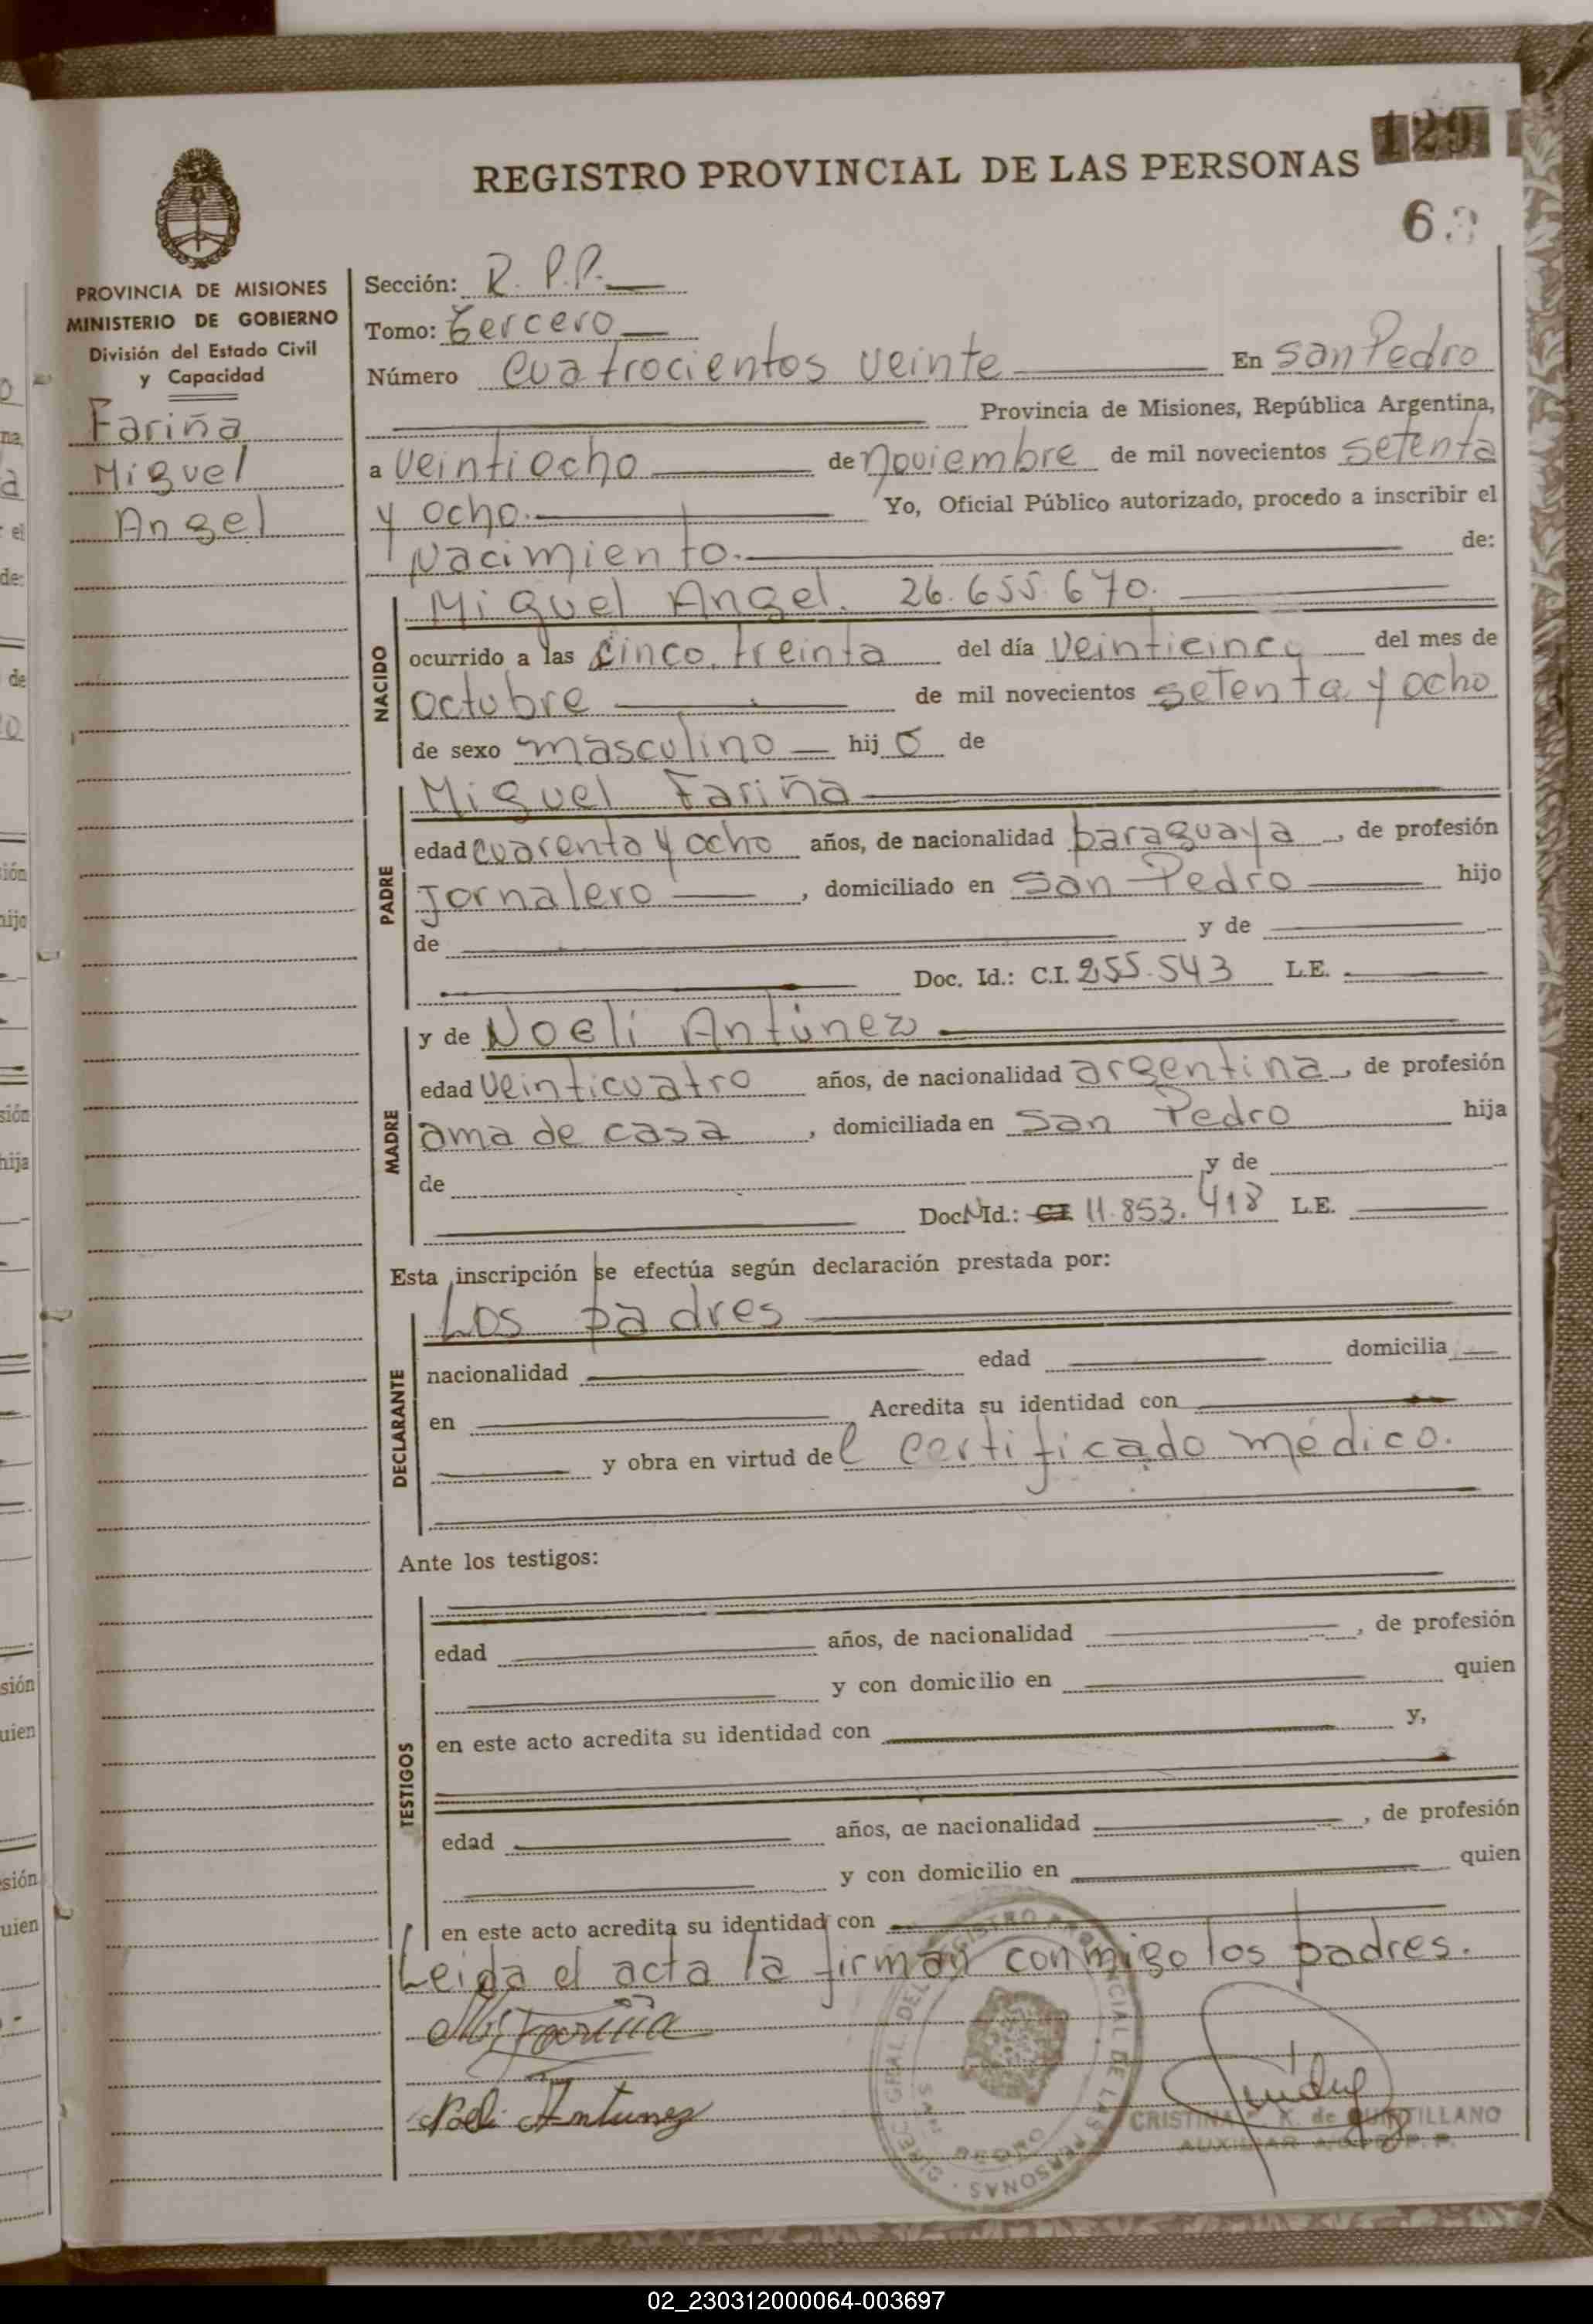 129
REGISTRO PROVINCIAL DE LAS PERSONAS
6
PROVINCIA DE MISIONES
MINISTERIO DE GOBIERNO
División del Estado Civil
y Capacidad
Fariña
Miguel
Angel
Sección: R. P.P.
Tomo: tercero
Número cuatrocientos veinte En San Pedro
Provincia de Misiones, República Argentina,
a veintiocho de noviembre de mil novecientos setenta
y ocho. Yo, Oficial Público autorizado, procedo a inscribir el
Nacimiento. de:
NACIDO
Miguel Angel. 26.655.670.
ocurrido a las cinco, treinta del día veinticinco del mes de
octubre de mil novecientos setenta y ocho
de sexo masculino hijo de
PADRE
Miguel Fariña
edad cuarenta y ocho años, de nacionalidad paraguaya, de profesión
Jornalero, domiciliado en San Pedro hijo
de y de
Doc. Id.: C.I. 255.543 L.E.
MADRE
y de Noelí Antúnez
edad veinticuatro años, de nacionalidad argentina, de profesión
ama de casa, domiciliada en San Pedro hija
de y de
Doc.N Id.: C.I. 11.853.418 L.E.
Esta inscripción se efectúa según declaración prestada por:
DECLARANTE
Los padres
nacionalidad edad domicilia
en Acredita su identidad con
y obra en virtud del certificado médico.
Ante los testigos:
TESTIGOS
edad años, de nacionalidad , de profesión
y con domicilio en quien
en este acto acredita su identidad con y,
edad años, de nacionalidad , de profesión
y con domicilio en quien
en este acto acredita su identidad con
Leida el acta la firman conmigo los padres.
Fariña
Noeli Antunez
GRAL DEL REGISTRO PROVINCIAL DE LAS PERSONAS
SAN PEDRO
CRISTINA K. de QUINTILLANO
AUXILIAR
02_230312000064-003697